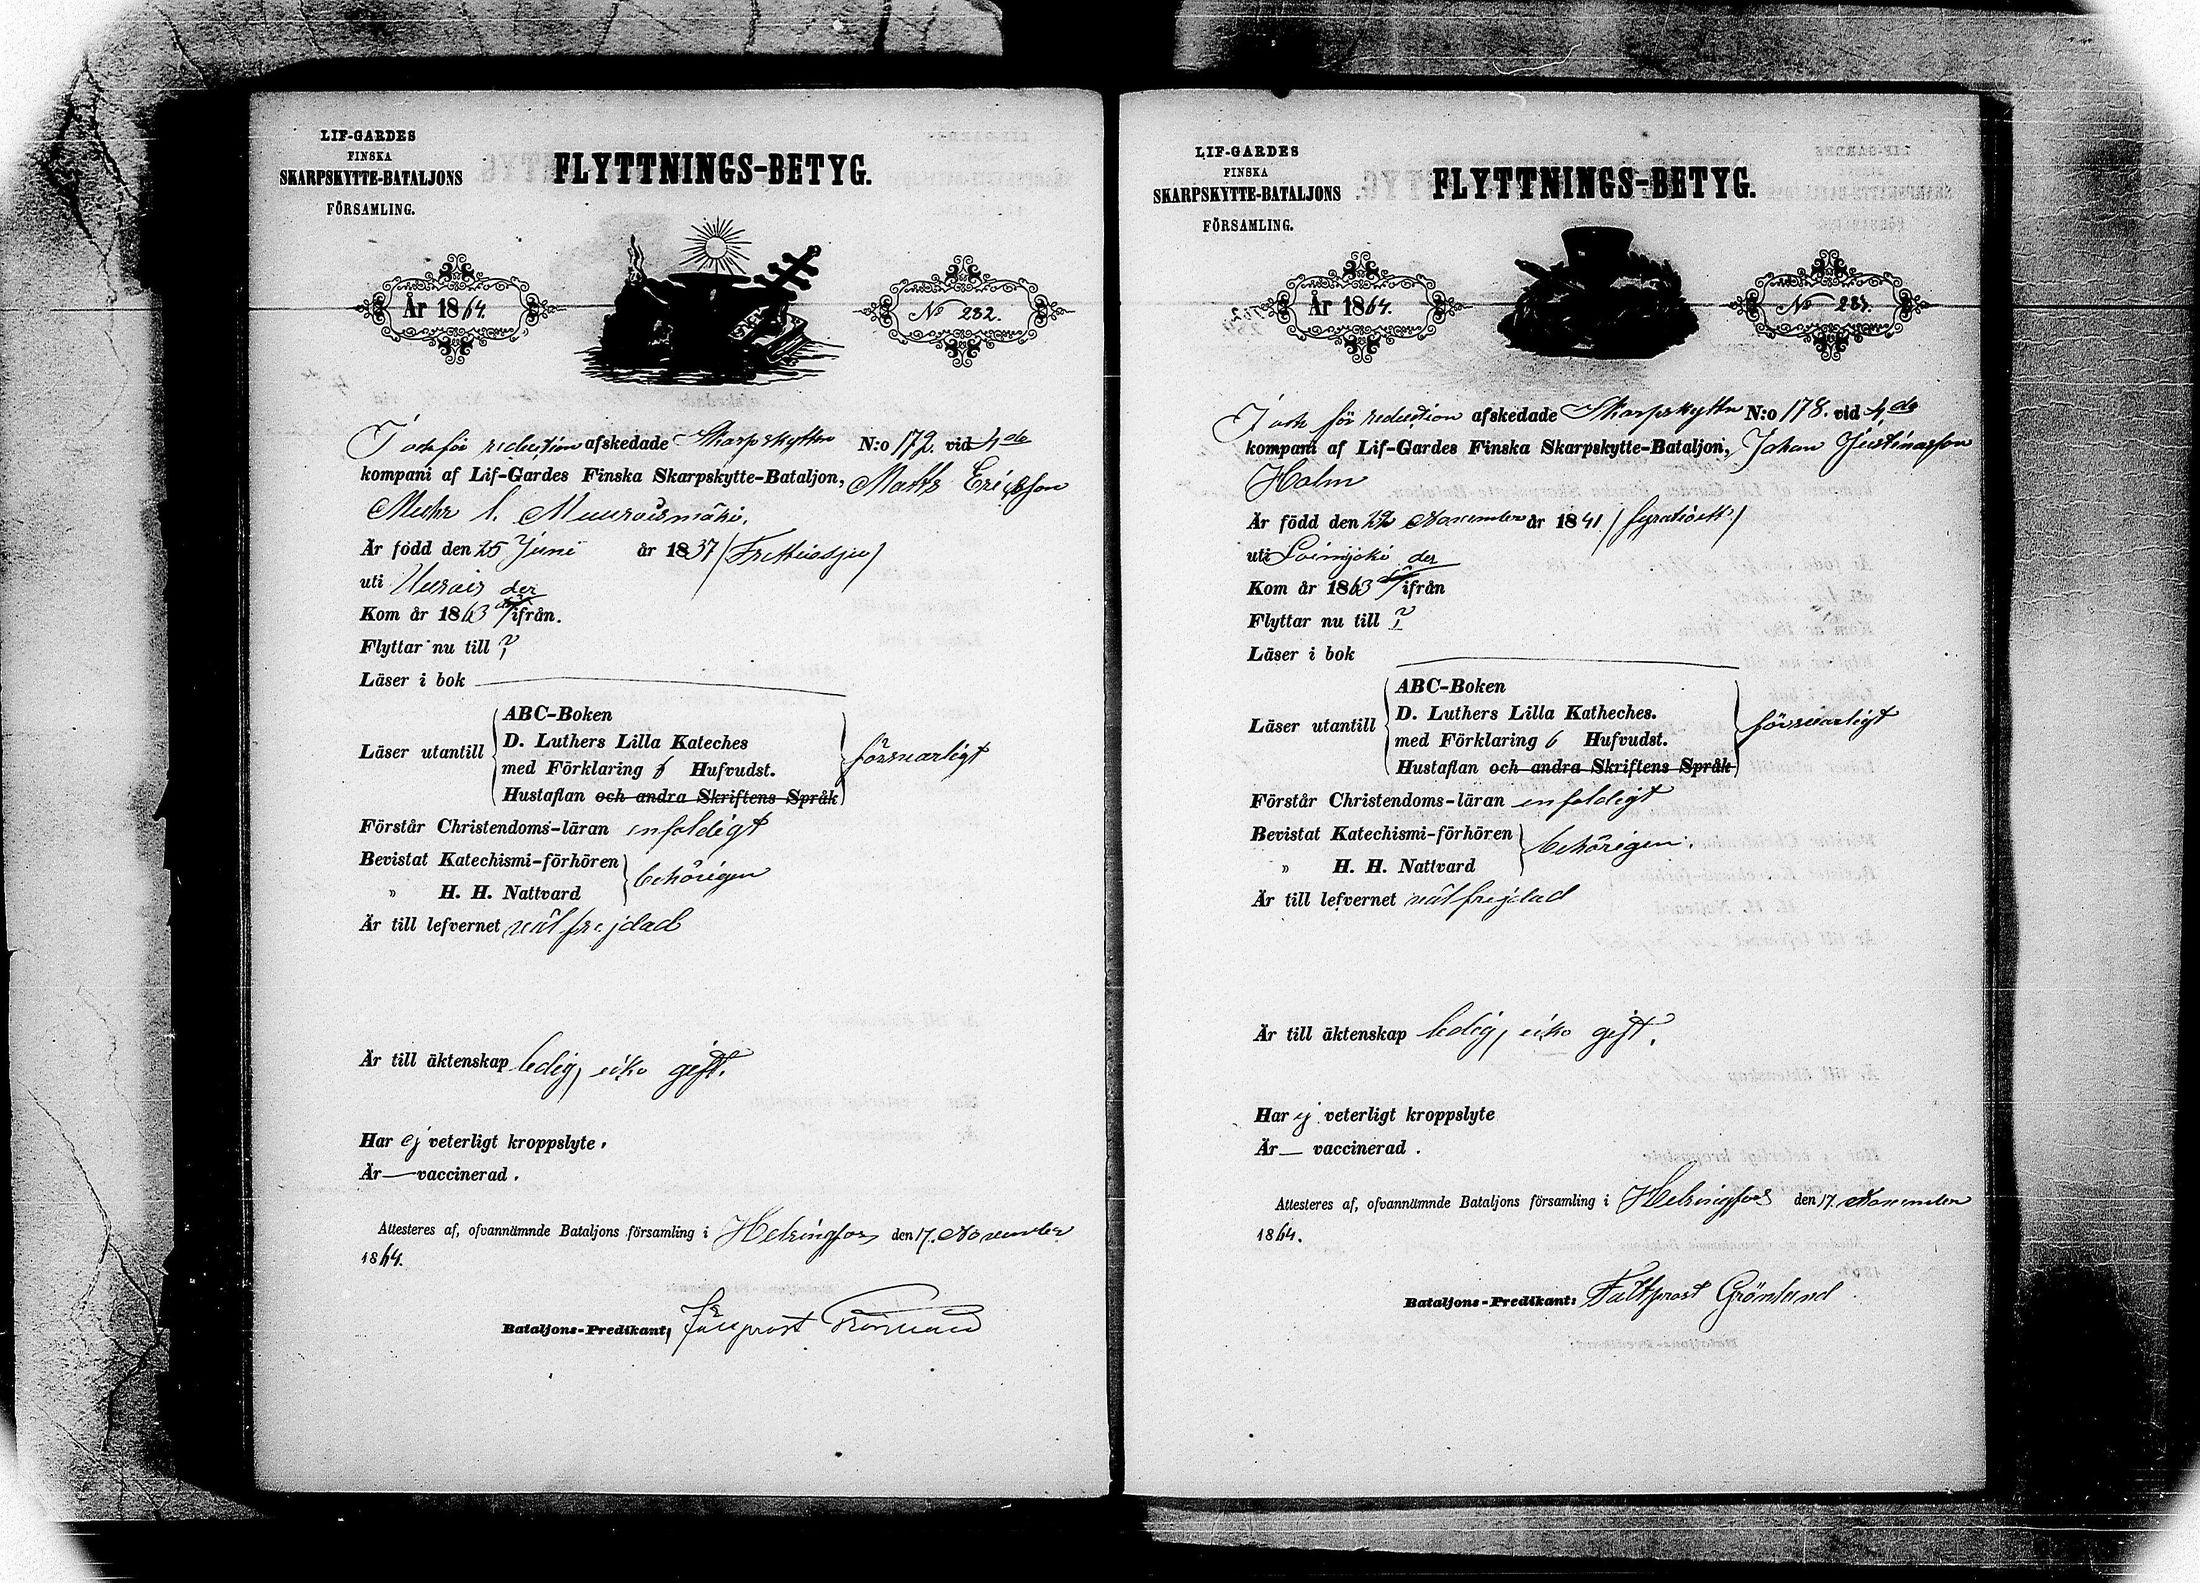 LIF-GARDES
FINSKA
SKARPSKYTTE-BATALJONS
FÖRSAMLING.
FLYTTNINGS-BETYG.
År 1864.
No 232.
I och för reduction afskedade Skarpskytten N:o 172. vid 4de
kompani af Lif-Gardes Finska Skarpskytte-Bataljon, Matts Ericsson
Muhr l. Muuraismäki.
Är född den 25 Juni år 1837 (Trettiosju)
uti
Kom år 1863 der ifrån.
Flyttar nu till ?
Läser i bok
Läser utantill
ABC-Boken
D. Luthers Lilla Kateches
med Förklaring 6 Hufvudst.
Hustaflan och andra Skriftens Språk
försvarligt
Förstår Christendoms-läran enfoldigt
Bevistat Katechismi-förhören
" H. H. Nattvard
behörigen
Är till lefvernet välfrejdad
Är till äktenskap ledig, icke gift.
Har ej veterligt kroppslyte.
Är — vaccinerad.
Attesteres af, ofvannämnde Bataljons församling i Helsingfors den 17. November
1864.
Bataljons-Predikant, Fältprost Grönlund
LIF-GARDES
FINSKA
SKARPSKYTTE-BATALJONS
FÖRSAMLING.
FLYTTNINGS-BETYG.
År 1864.
No 233.
I och för reduction afskedade Skarpskytten N:o 178. vid 4de
kompani af Lif-Gardes Finska Skarpskytte-Bataljon, Johan Justinasson
Holm
Är född den 22 November år 1841 (fyratioett)
uti Loimijoki
Kom år 1863 der ifrån
Flyttar nu till ?
Läser i bok
Läser utantill
ABC-Boken
D. Luthers Lilla Katheches.
med Förklaring 6 Hufvudst.
Hustaflan och andra Skriftens Språk
försvarligt
Förstår Christendoms-läran enfoldigt
Bevistat Katechismi-förhören
" H. H. Nattvard
behörigen.
Är till lefvernet välfrejdad
Är till äktenskap ledig, icke gift.
Har ej veterligt kroppslyte
Är — vaccinerad.
Attesteres af, ofvannämnde Bataljons församling i Helsingfors den 17. November
1864.
Bataljons-Predikant: Fältprost Grönlund